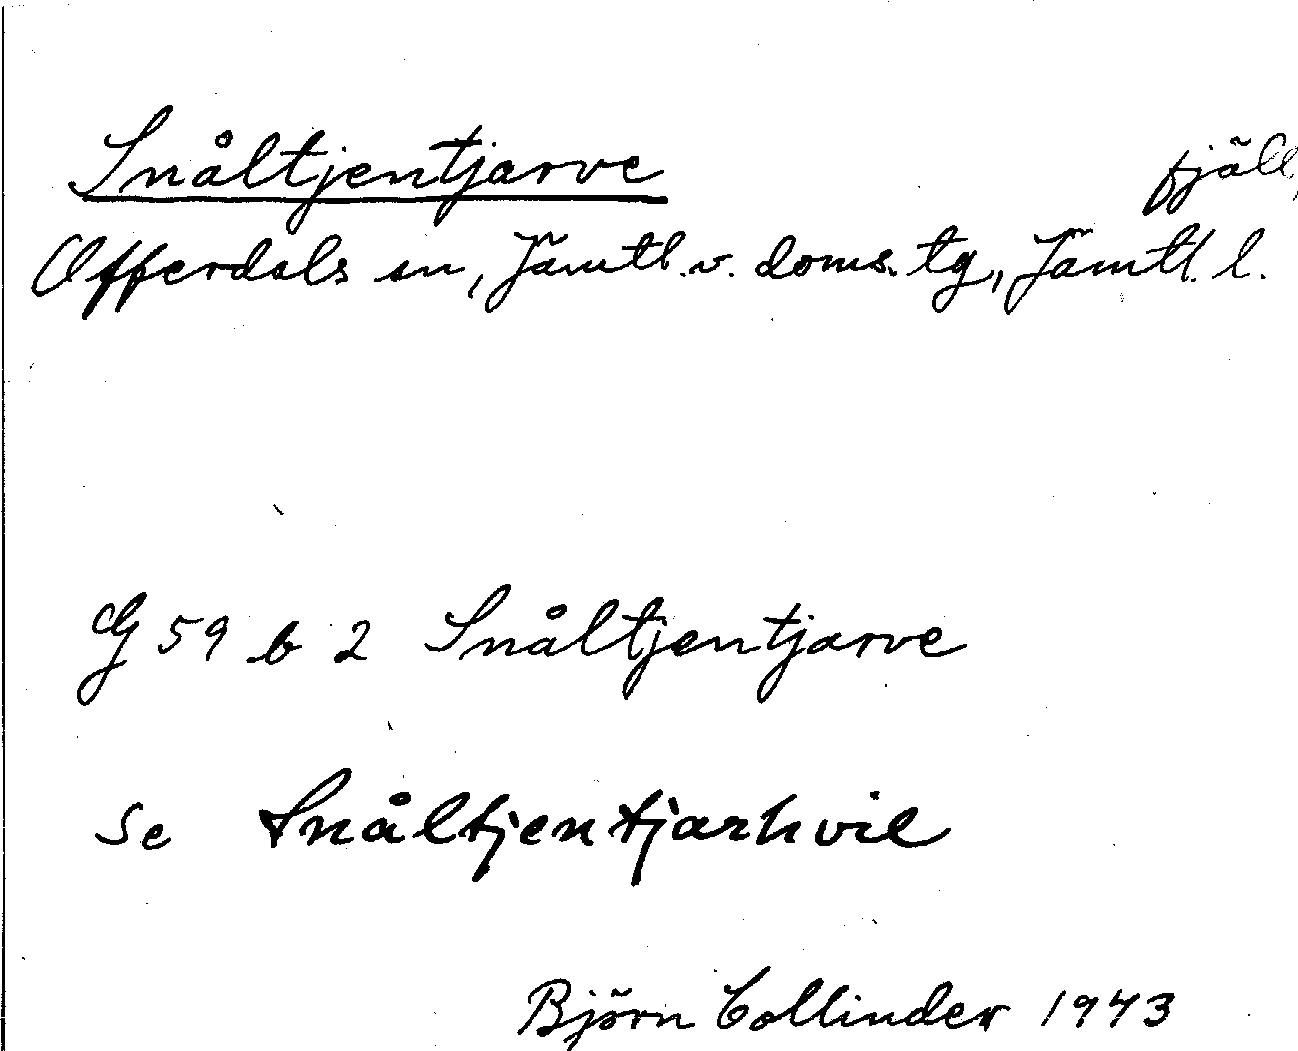 Snåltjentjarve fjäll,
Offerdals sn, Jämtl. v. doms. tg, Jämtl. l.
G 59 b 2 Snåltjentjarve
Se Snåltjentjarhvie
Björn Collinder 1943